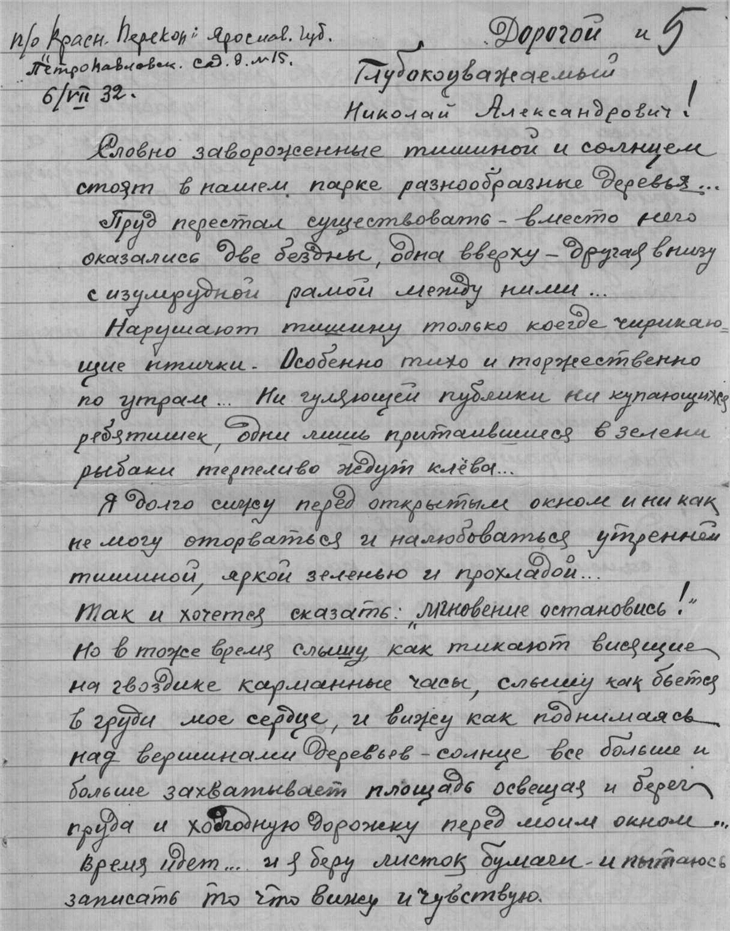 п/о Красн. Перекоп: Ярослав. губ.
Петропавловск. сад. д. № 15.
6/VII 32.
5
Дорогой и
Глубокоуважаемый
Николай Александрович!
Словно завороженные тишиной и солнцем
стоят в нашем парке разнообразные деревья...
Пруд перестал существовать - вместо него
оказались две бездны, одна вверху - другая внизу
с изумрудной рамой между ними...
Нарушают тишину только коегде чирикаю=
щие птички. Особенно тихо и торжественно
по утрам... Ни гуляющей публики ни купающихся
ребятишек, одни лишь притаившиеся в зелени
рыбаки терпеливо ждут клёва...
Я долго сижу перед открытым окном и ни как
не могу оторваться и налюбоваться утренней
тишиной, яркой зеленью и прохладой...
Так и хочется сказать: "мгновение остановись!"
Но в тоже время слышу как тикают висящие
на гвоздике карманные часы, слышу как бьется
в груди мое сердце, и вижу как поднимаясь
над вершинами деревьев - солнце все больше и
больше захватывает площадь освещая и берег
пруда и холодную дорожку перед моим окном...
Время идет... и я беру листок бумаги - и пытаюсь
записать то что вижу и чувствую.